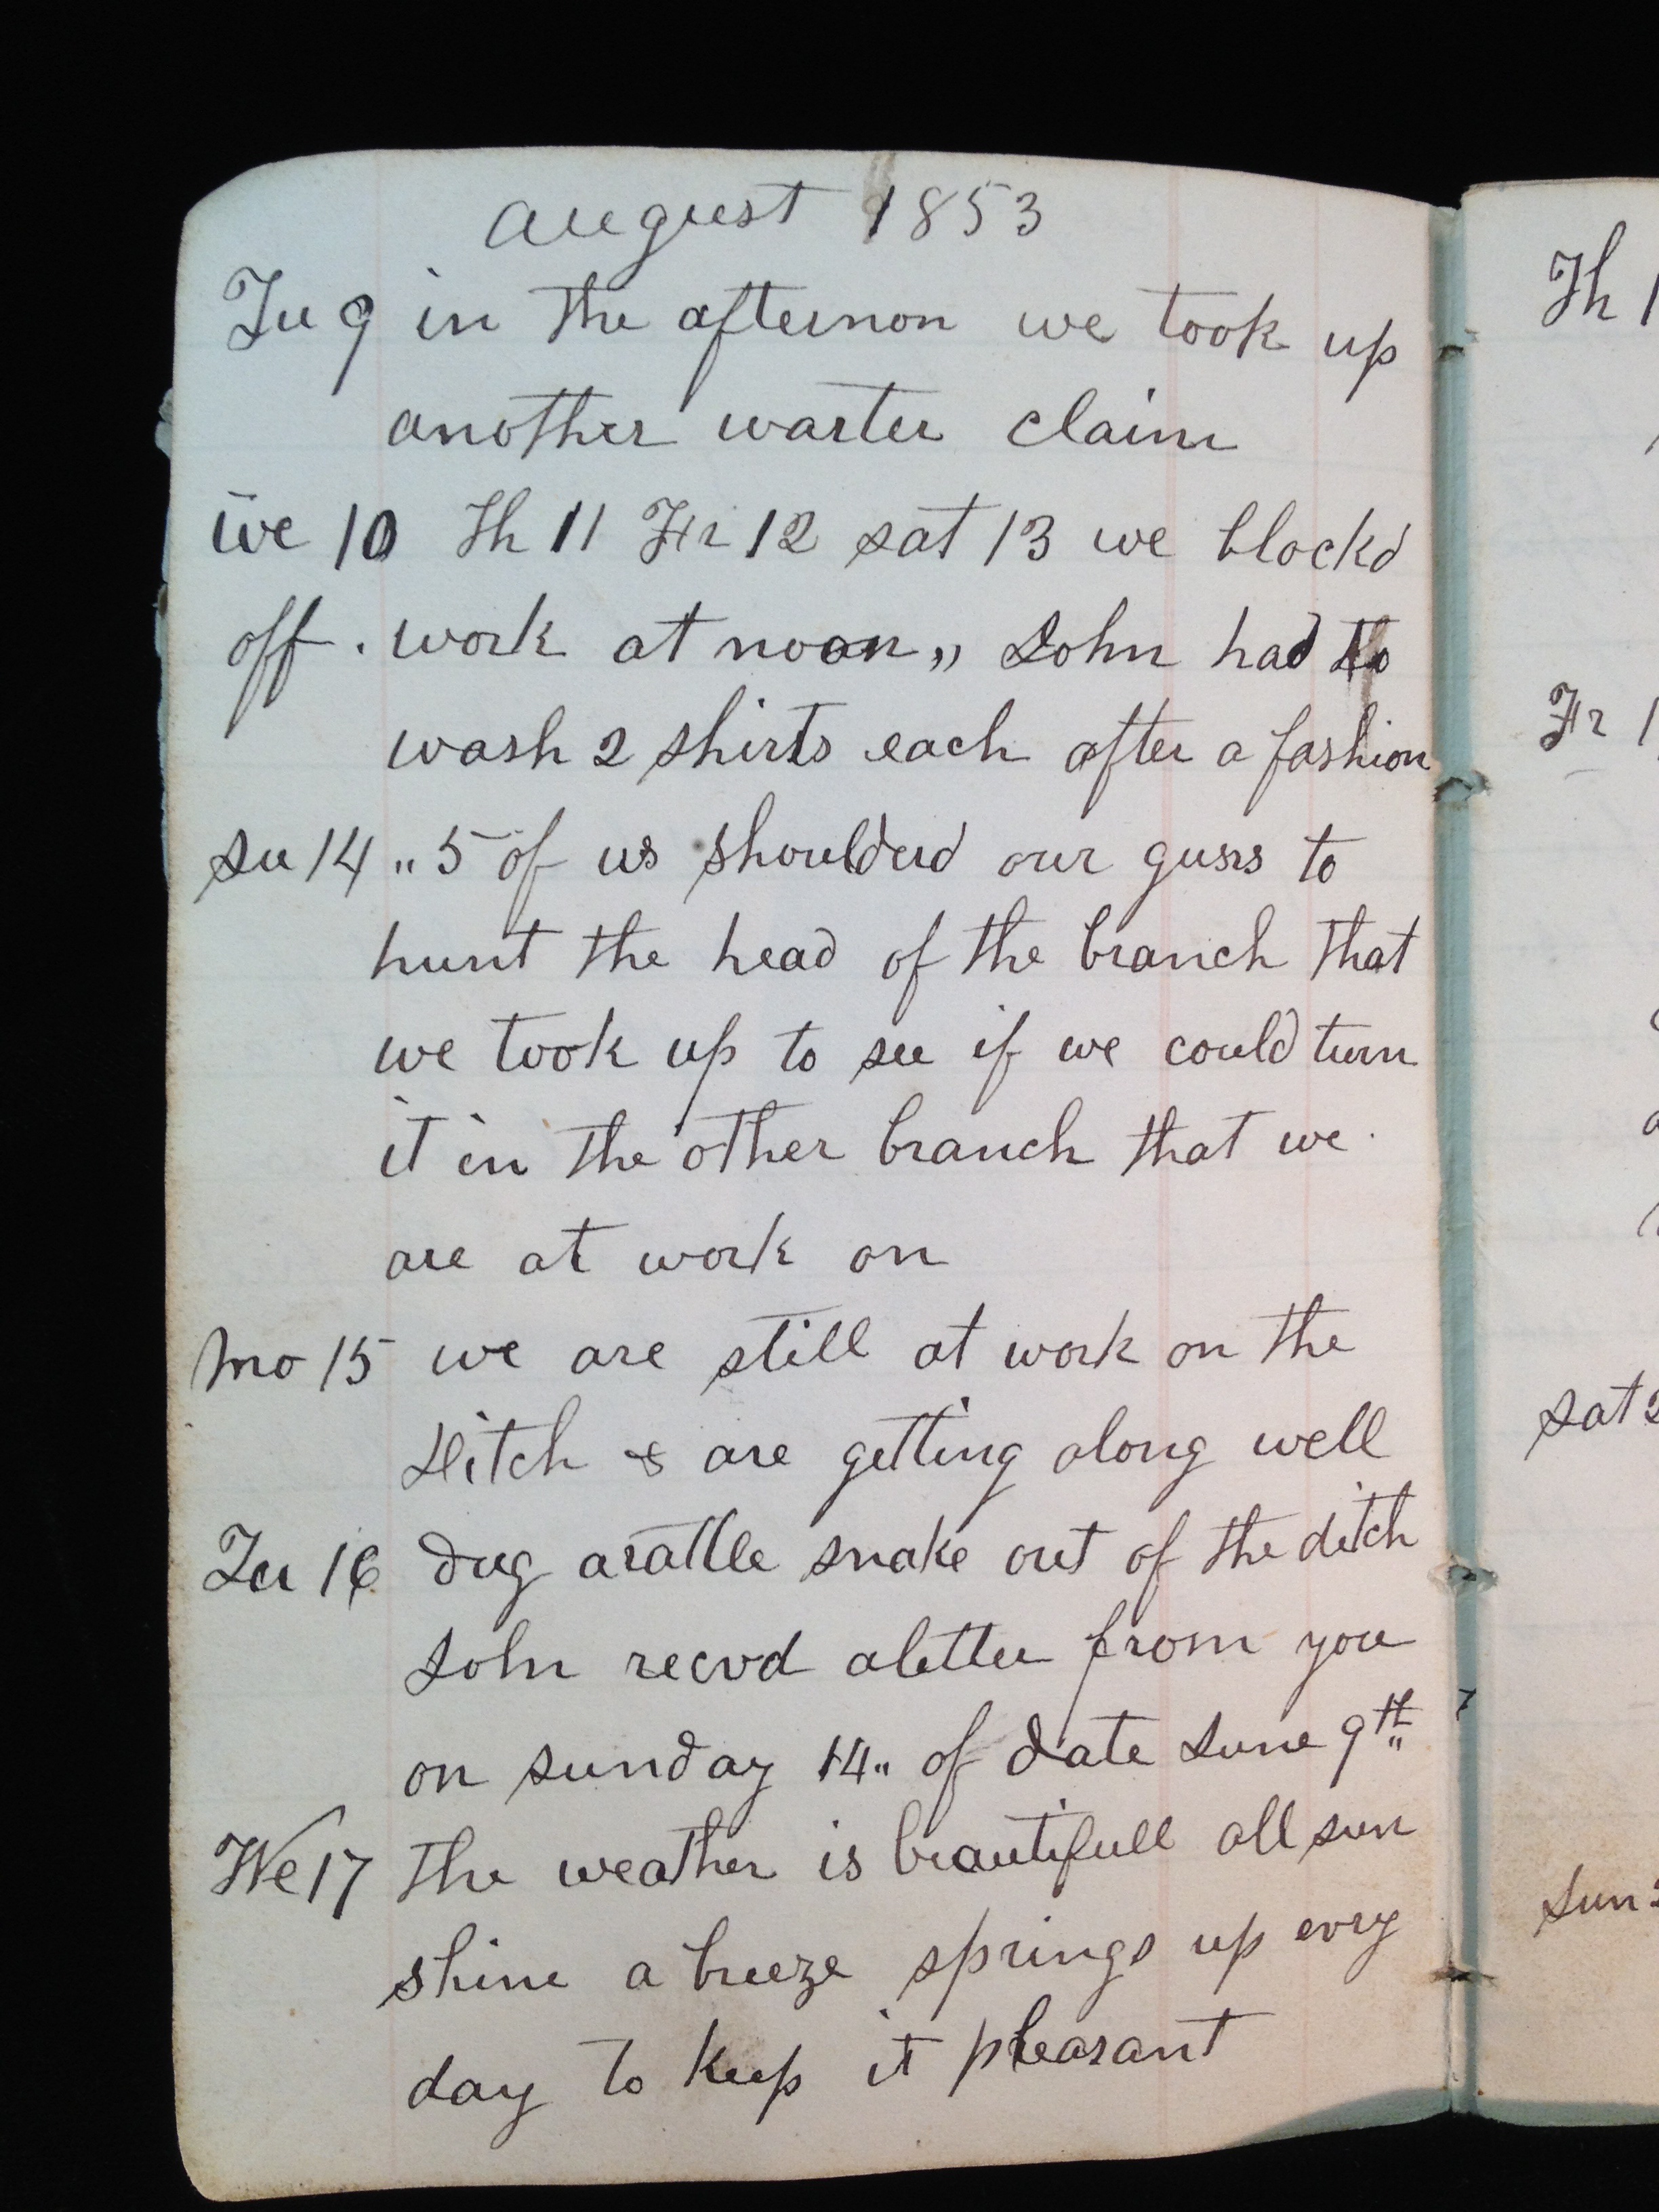 august 1853
Tu 9 in the afternon we took up
another warter claim
we 10 Th 11 Fr 12 sat 13 we blockd
off. work at noon,, John had to
wash 2 shirts each after a fashion
su 14 ,, 5 of us shoulderd our guns to
hunt the head of the branch that
we took up to see if we could turn
it in the other branch that we
are at work on
Mo 15 we are still at work on the
Ditch & are getting along well
Tu 16 dug arattle snake out of the ditch
John recvd aletter from you
on sunday 14,, of date June 9th
We 17 the weather is beautifull all sun
shine a breeze springs up evry
day to keep it pleasant
Th 1
Fr 1
sat 2
sun 2